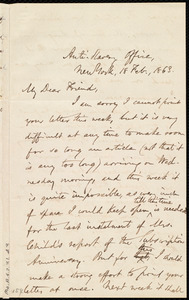 Anti-Slavery Office,
New York, 18 Feb., 1863.
My Dear Friend,
I am sorry I cannot print
your letter this week, but it is very
difficult at any time to make room
for so long an article (as that is
any too long) arriving on Wed-
nesday morning and this week it
is quite impossible, as every inch
of space I could keep open till this time is needed
for the last instalment of Mrs
Child's report of the Subscription
Anniversary. But for I should
make a strong effort to print your
letter at once. Next week it shall